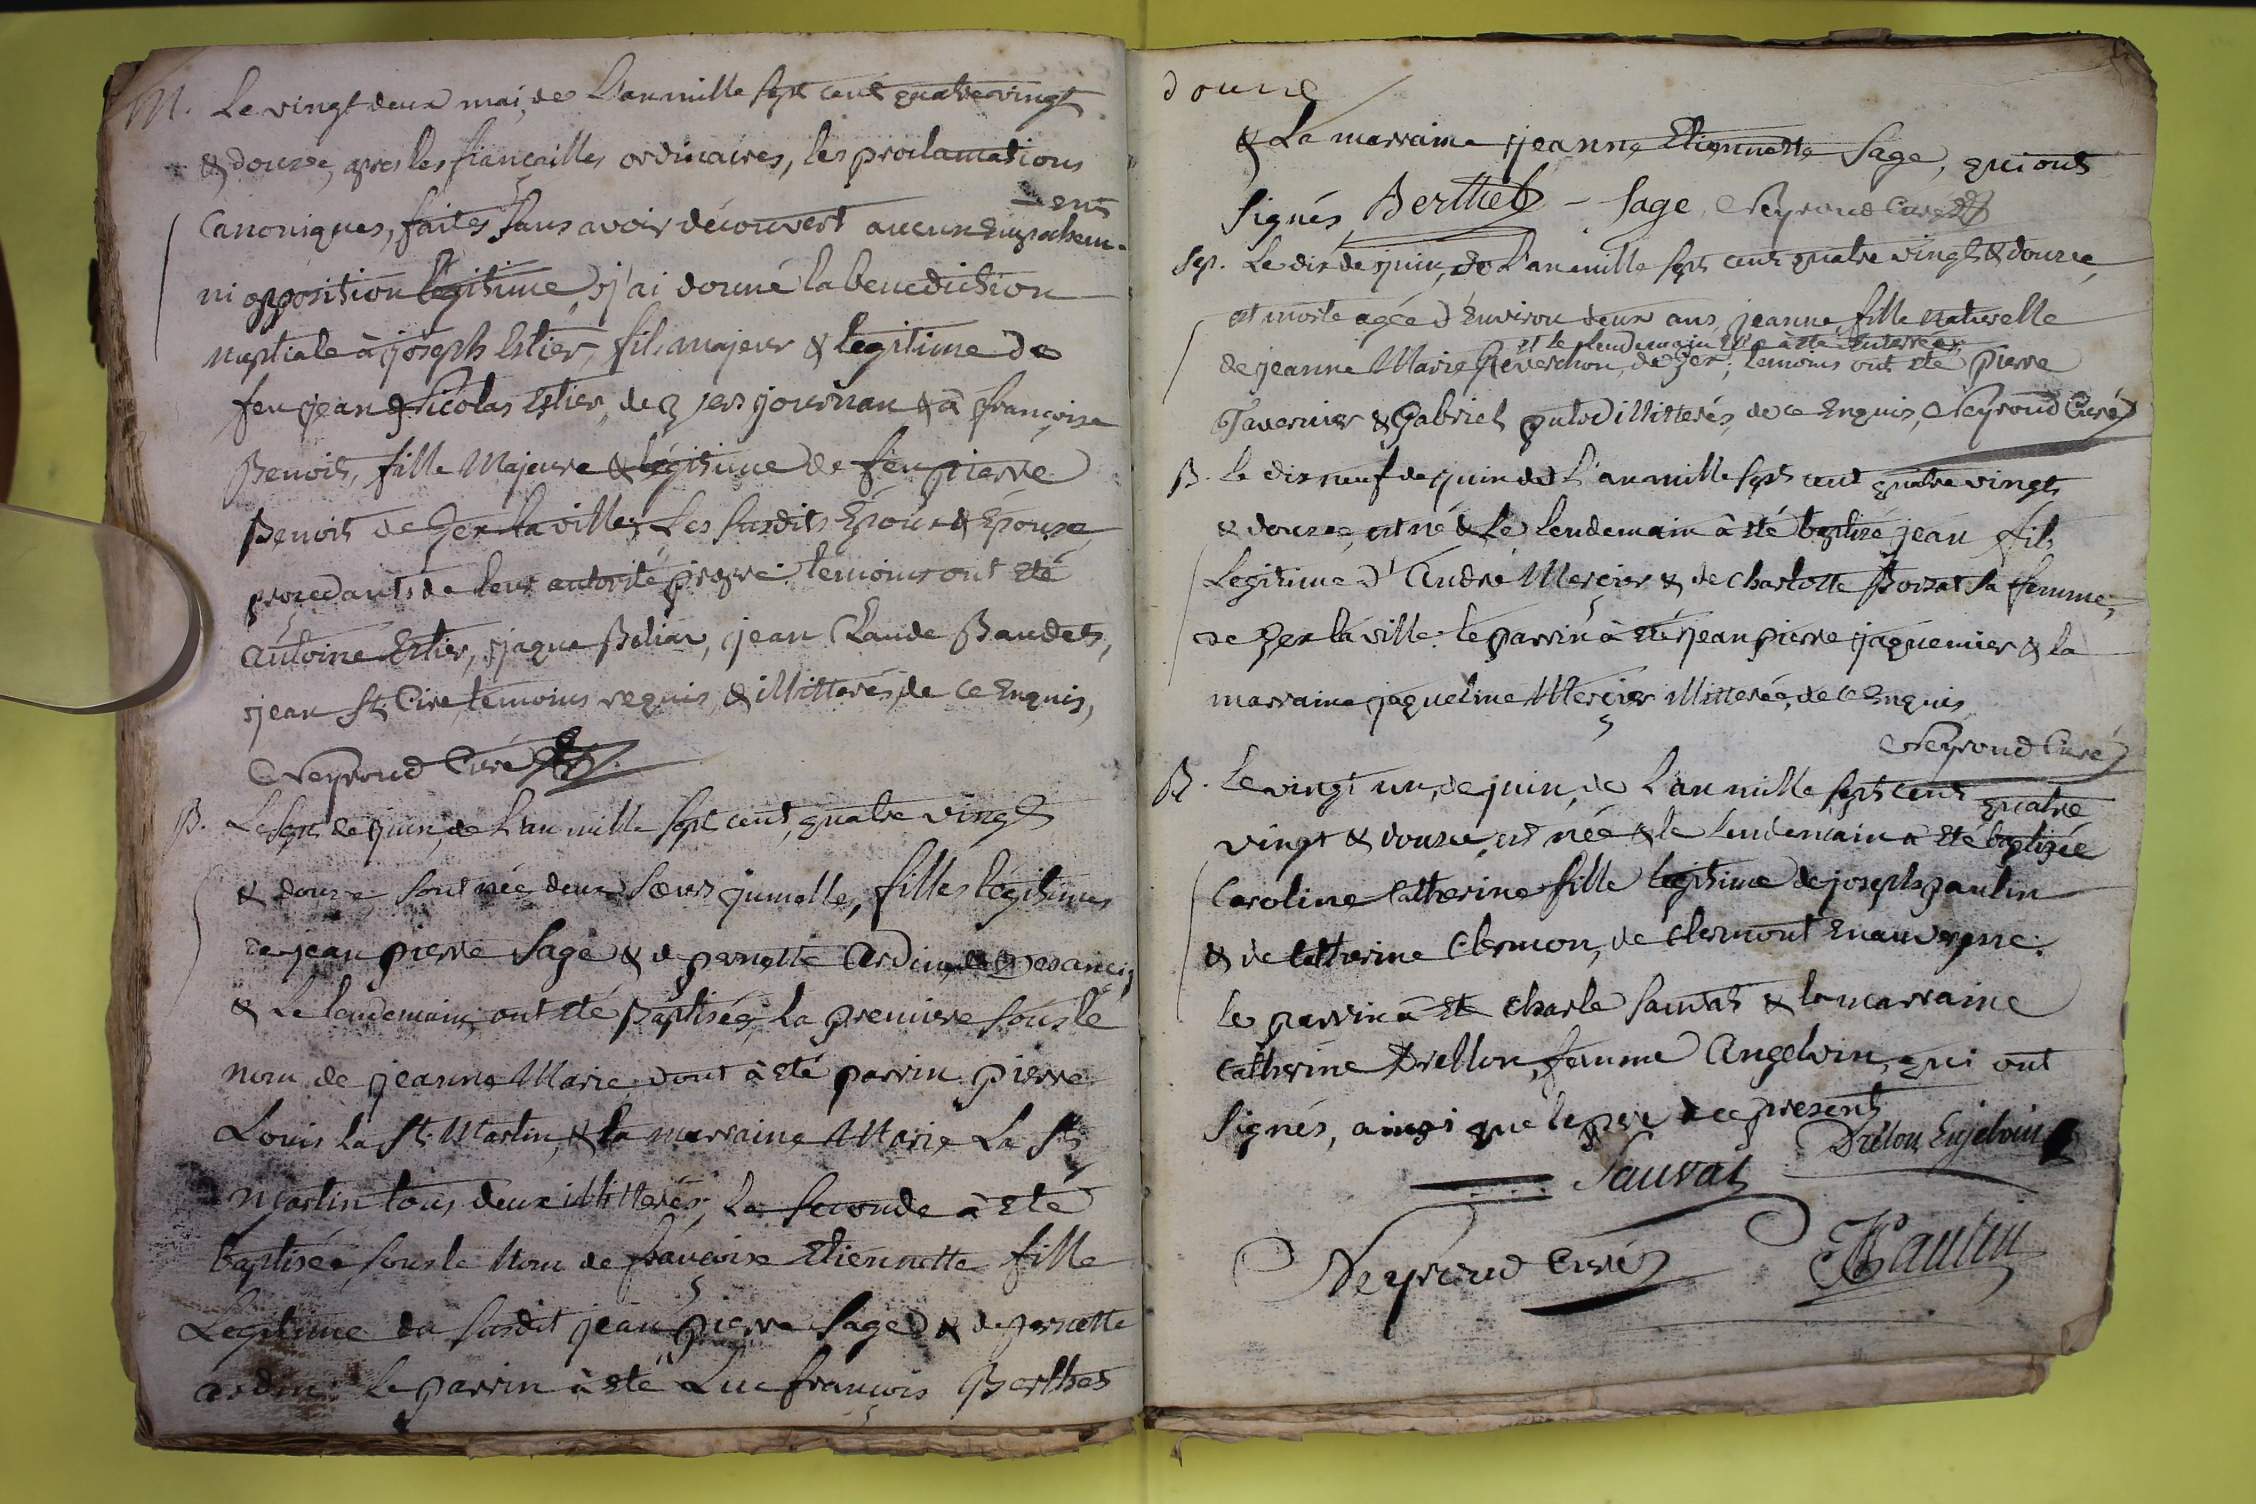 M. Le vingt deux mai, de L'an mille sept cent quatre vingt
& douze, apres les fiançailles ordinaires, les proclamations
Canoniques, faites sans avoir découvert aucun Empechem-
ent
ni opposition legitime, j'ai donné la benediction
nuptiale à joseph Estier, fils majeur & legitime de
feu jean Nicolas Estier, de journan & à françoise
Benoit, fille Majeure & légitime de feu pierre
Benoit de Gex la ville; Les susdits Epoux & Epouse
procedants de leur autorité propre: temoins ont eté
antoine Estier, jaque Belia, jean Claude Baudet,
jean St. Cire, temoins requis, & illitterés, de ce Enquis,
Neyroud Curé
B. Le sept de juin, de L'an mille sept cent, quatre vingt
& douze, sont née deux soeurs jumelle, filles legitimes
de jean pierre Sage & de pernette Ardin,
& Le lendemain, ont eté Baptisées, La premiere sous le
nom de jeanne Marie, dont à eté parrin pierre
Louis La St. Martin, & la marraine Marie La St.
Martin tous deux illitterés; La seconde à eté
baptisée, sous le Nom de françoise Etiennette fille
Legitime du susdit jean pierre Sage & de pernette
ardin: Le parrin à eté Luc françois Berthet
douze
& La marraine jeanne Etiennette Sage, qui ont
signés, Berthet - Sage, Neyroud Curé
Sep. Le dix de juin, de L'an mille sept cent quatre vingt & douze,
est morte agée d'Environ deux ans, jeanne, fille naturelle
et le lendemain Elle à eté Enterrée,
de jeanne Marie Reverchon, de Gex; temoins ont eté pierre
Tavernier & Gabriel illitterés, de ce Enquis, Neyroud Curé
B. Le dix neuf de juin de L'an mille sept cent quatre vingt
& douze, est né & Le lendemain à eté baptisé jean fils
Legitime d'André Mercier & de Charlotte Borsat sa femme,
de Gex la ville: le parrin à eté jean pierre jaquemier & la
marraine jaqueline Mercier illitterée, de ce Enquis
Neyroud Curé
B. Le vingt un, de juin, de L'an mille sept cent quatre
vingt & douze, est née & le lendemain à eté baptisée
Caroline Catherine fille legitime de joseph paulin
& de Catherine Clermon, de Clermont En auvergne:
le parrin à eté Charle Sauvat & la marraine
Catherine Drellon, femme Angelvin, qui ont
signés, ainsi que le per de ce present
Sauvat Drelon Enjelvin
Neyroud Curé Paulin